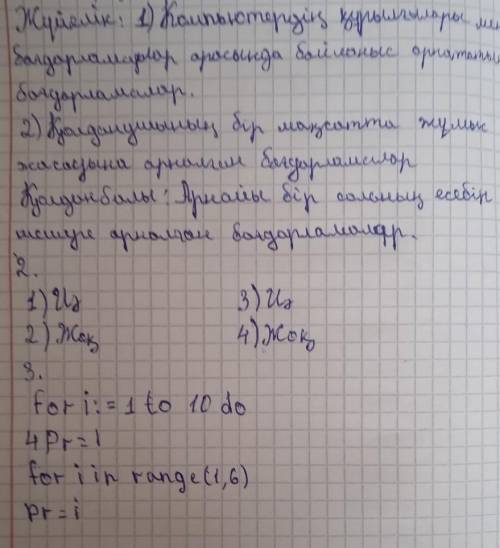 Жүйелік: 1) Компьютердің құрылғылары
бағдарламалар арасында байланыс орнататын
бағдарламалар.
2) Қолданушының бір мақсатта жұмыс
жасасына арналған бағдарламалар
Қолданбалы: Арнайы бір саланың есебін
шешуге арналған бағдарламалар.
2.
1) Иә 3) Иә
2) Жоқ 4) Жоқ
3.
for i:= 1 to 10 do
4 Pr=1
for i in range(1,6)
pr=i